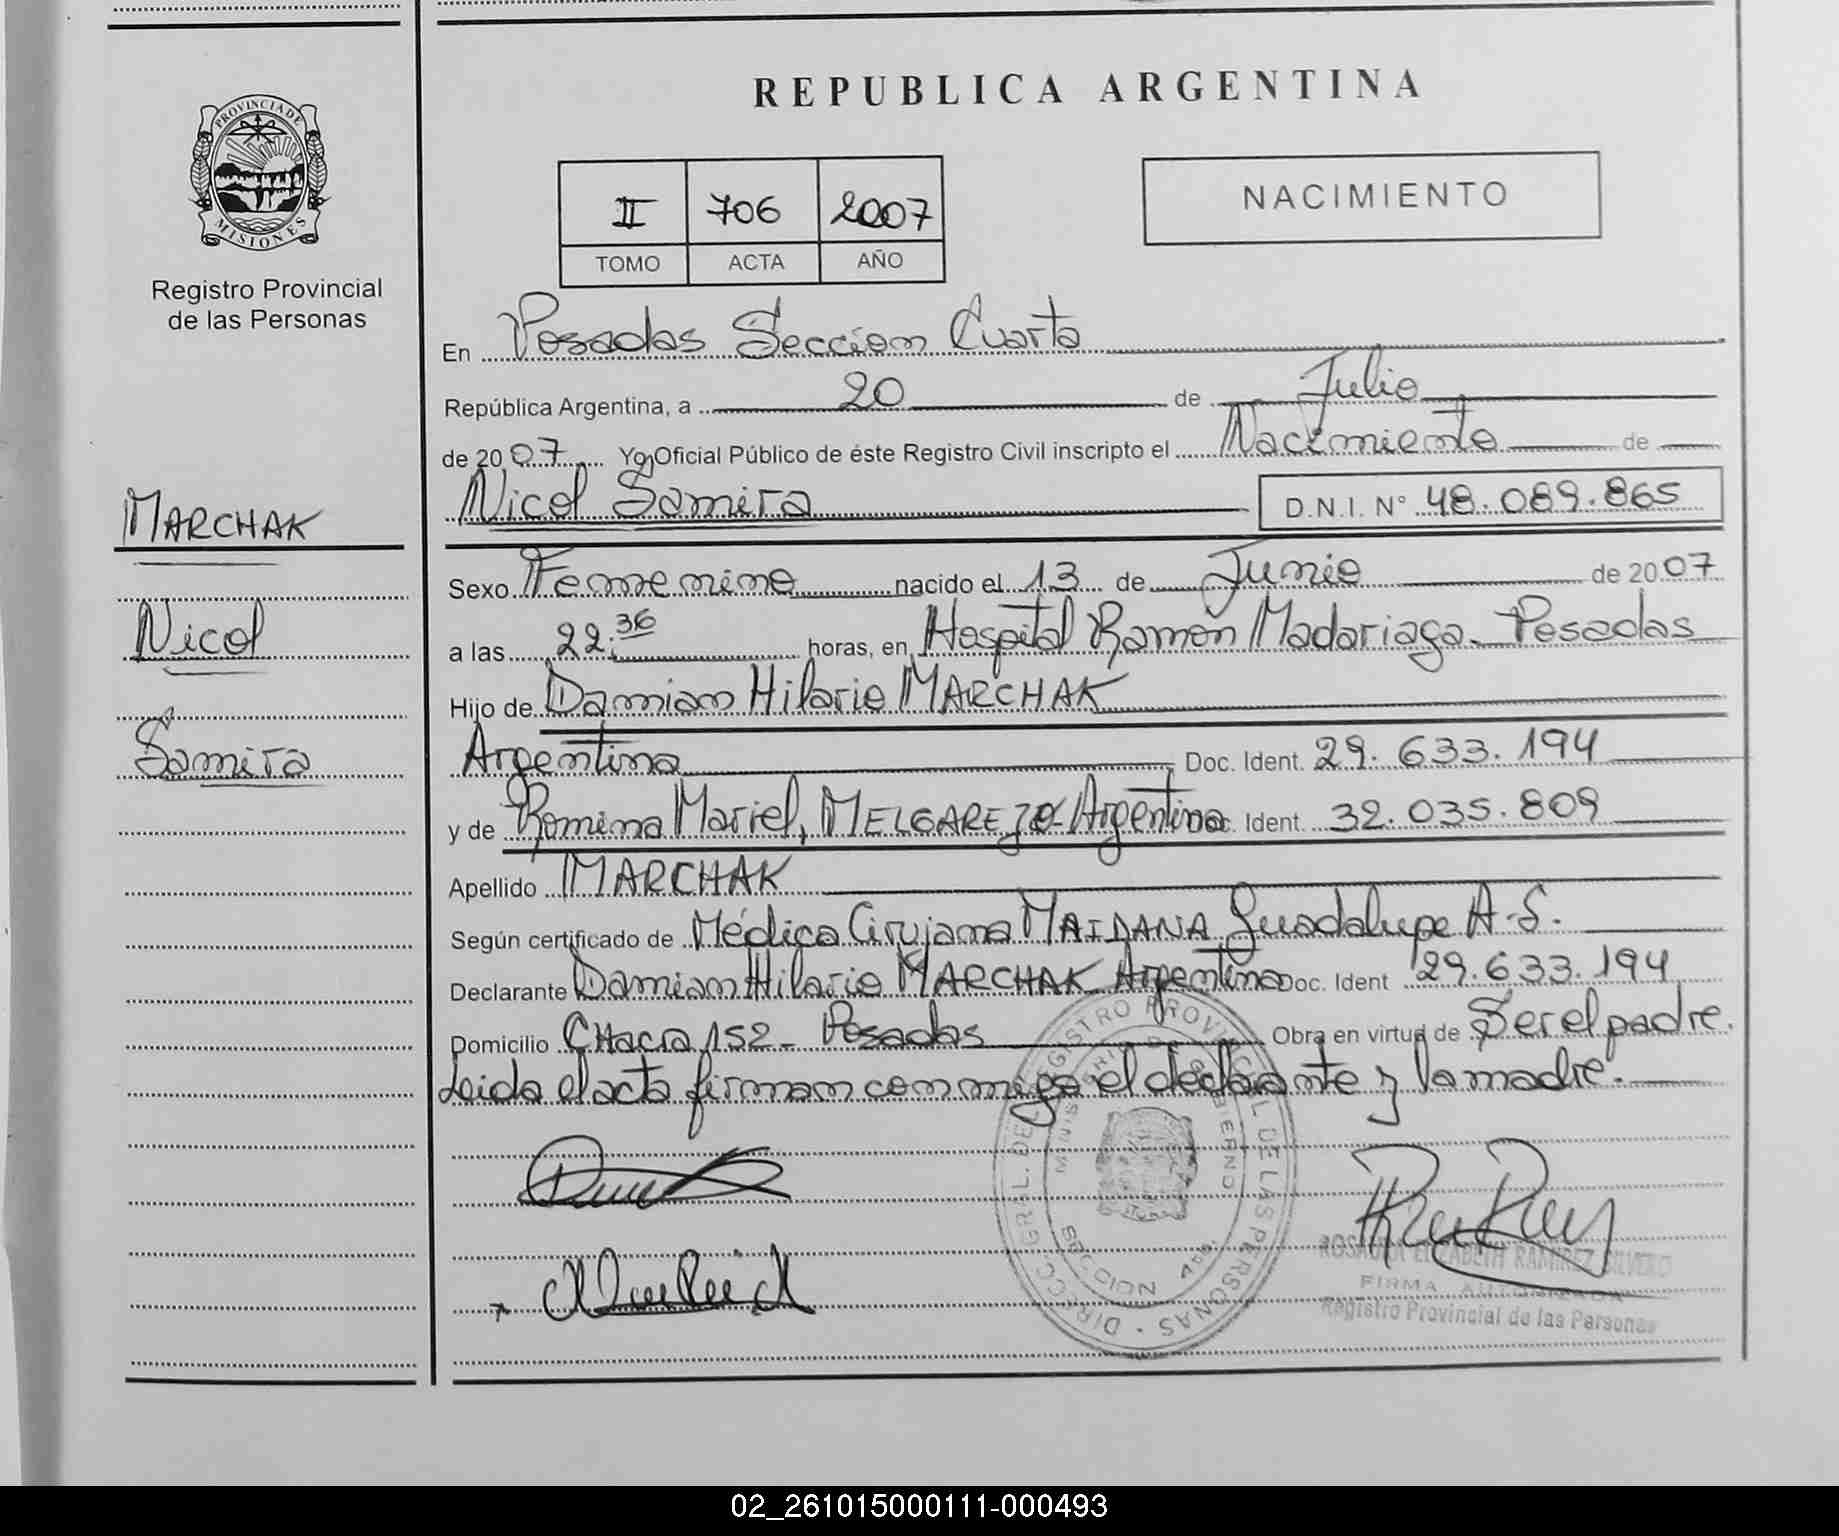 REPUBLICA ARGENTINA
PROVINCIA DE MISIONES
Registro Provincial
de las Personas
II 706 2007
TOMO ACTA AÑO
NACIMIENTO
En Posadas Seccion Cuarta
República Argentina, a 20 de Julio
de 2007 Yo, Oficial Público de éste Registro Civil inscripto el Nacimiento de
Nicol Samira D.N.I. N° 48.089.865
MARCHAK
Nicol
Samira
Sexo Femenino nacido el 13 de Junio de 2007
a las 22:36 horas, en Hospital Ramon Madariaga - Posadas
Hijo de Damian Hilario MARCHAK
Argentina Doc. Ident. 29.633.194
y de Romina Mariel, MELGAREJO - Argentina Doc. Ident. 32.035.809
Apellido MARCHAK
Según certificado de Médica Cirujana MAIDANA Guadalupe A. S.
Declarante Damian Hilario MARCHAK Argentina Doc. Ident 29.633.194
Domicilio CHacra 152 - Posadas Obra en virtud de Ser el padre.
Leida el acta firman conmigo el declarante y la madre.
DIRECC. GRAL. DEL REGISTRO PROVINCIAL DE LAS PERSONAS
MINISTERIO DE GOBIERNO
SECCION 4ta.
ROSAURA ELIZABETH RAMIREZ SILVERO
FIRMA AUTORIZADA
Registro Provincial de las Personas
02_261015000111-000493